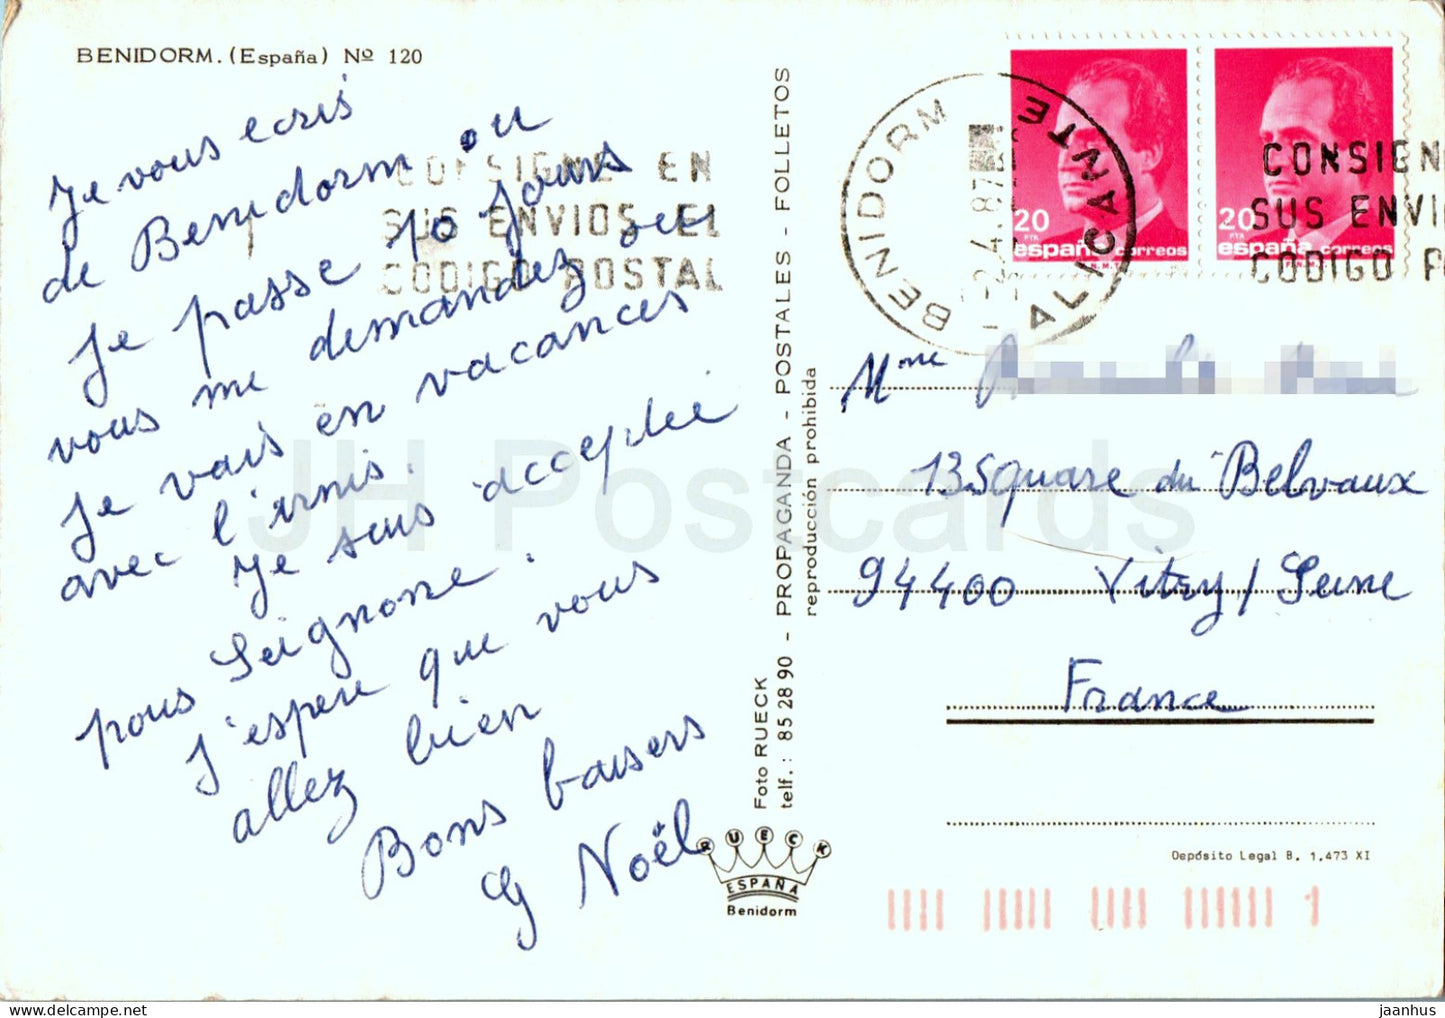 BENIDORM. (España) Nº 120
Je vous ecris
de Benidorm ou
Je passe 10 Jours
vous me demandez si
Je vais en vacances
avec l'irnis.
Je suis acceptée
pous Seignone.
J'espere que vous
allez bien
Bons baisers
G Noël
CONSIGNE EN
SUS ENVIOS EL
CODIGO POSTAL
Foto RUECK
telf.: 85 28 90 - PROPAGANDA - POSTALES - FOLLETOS
reproducción prohibida
RUECK
ESPAÑA
Benidorm
BENIDORM
ALICANTE
2.4.87
20
PTA
españa correos
F.N.M.T.
20
PTA
españa correos
F.N.M.T.
CONSIGN
SUS ENVI
CODIGO P
Mme
13 Square du Belvaux
94400 Vitry / Seine
France
Depósito Legal B. 1.473 XI
1
JH Postcards
jaanhus